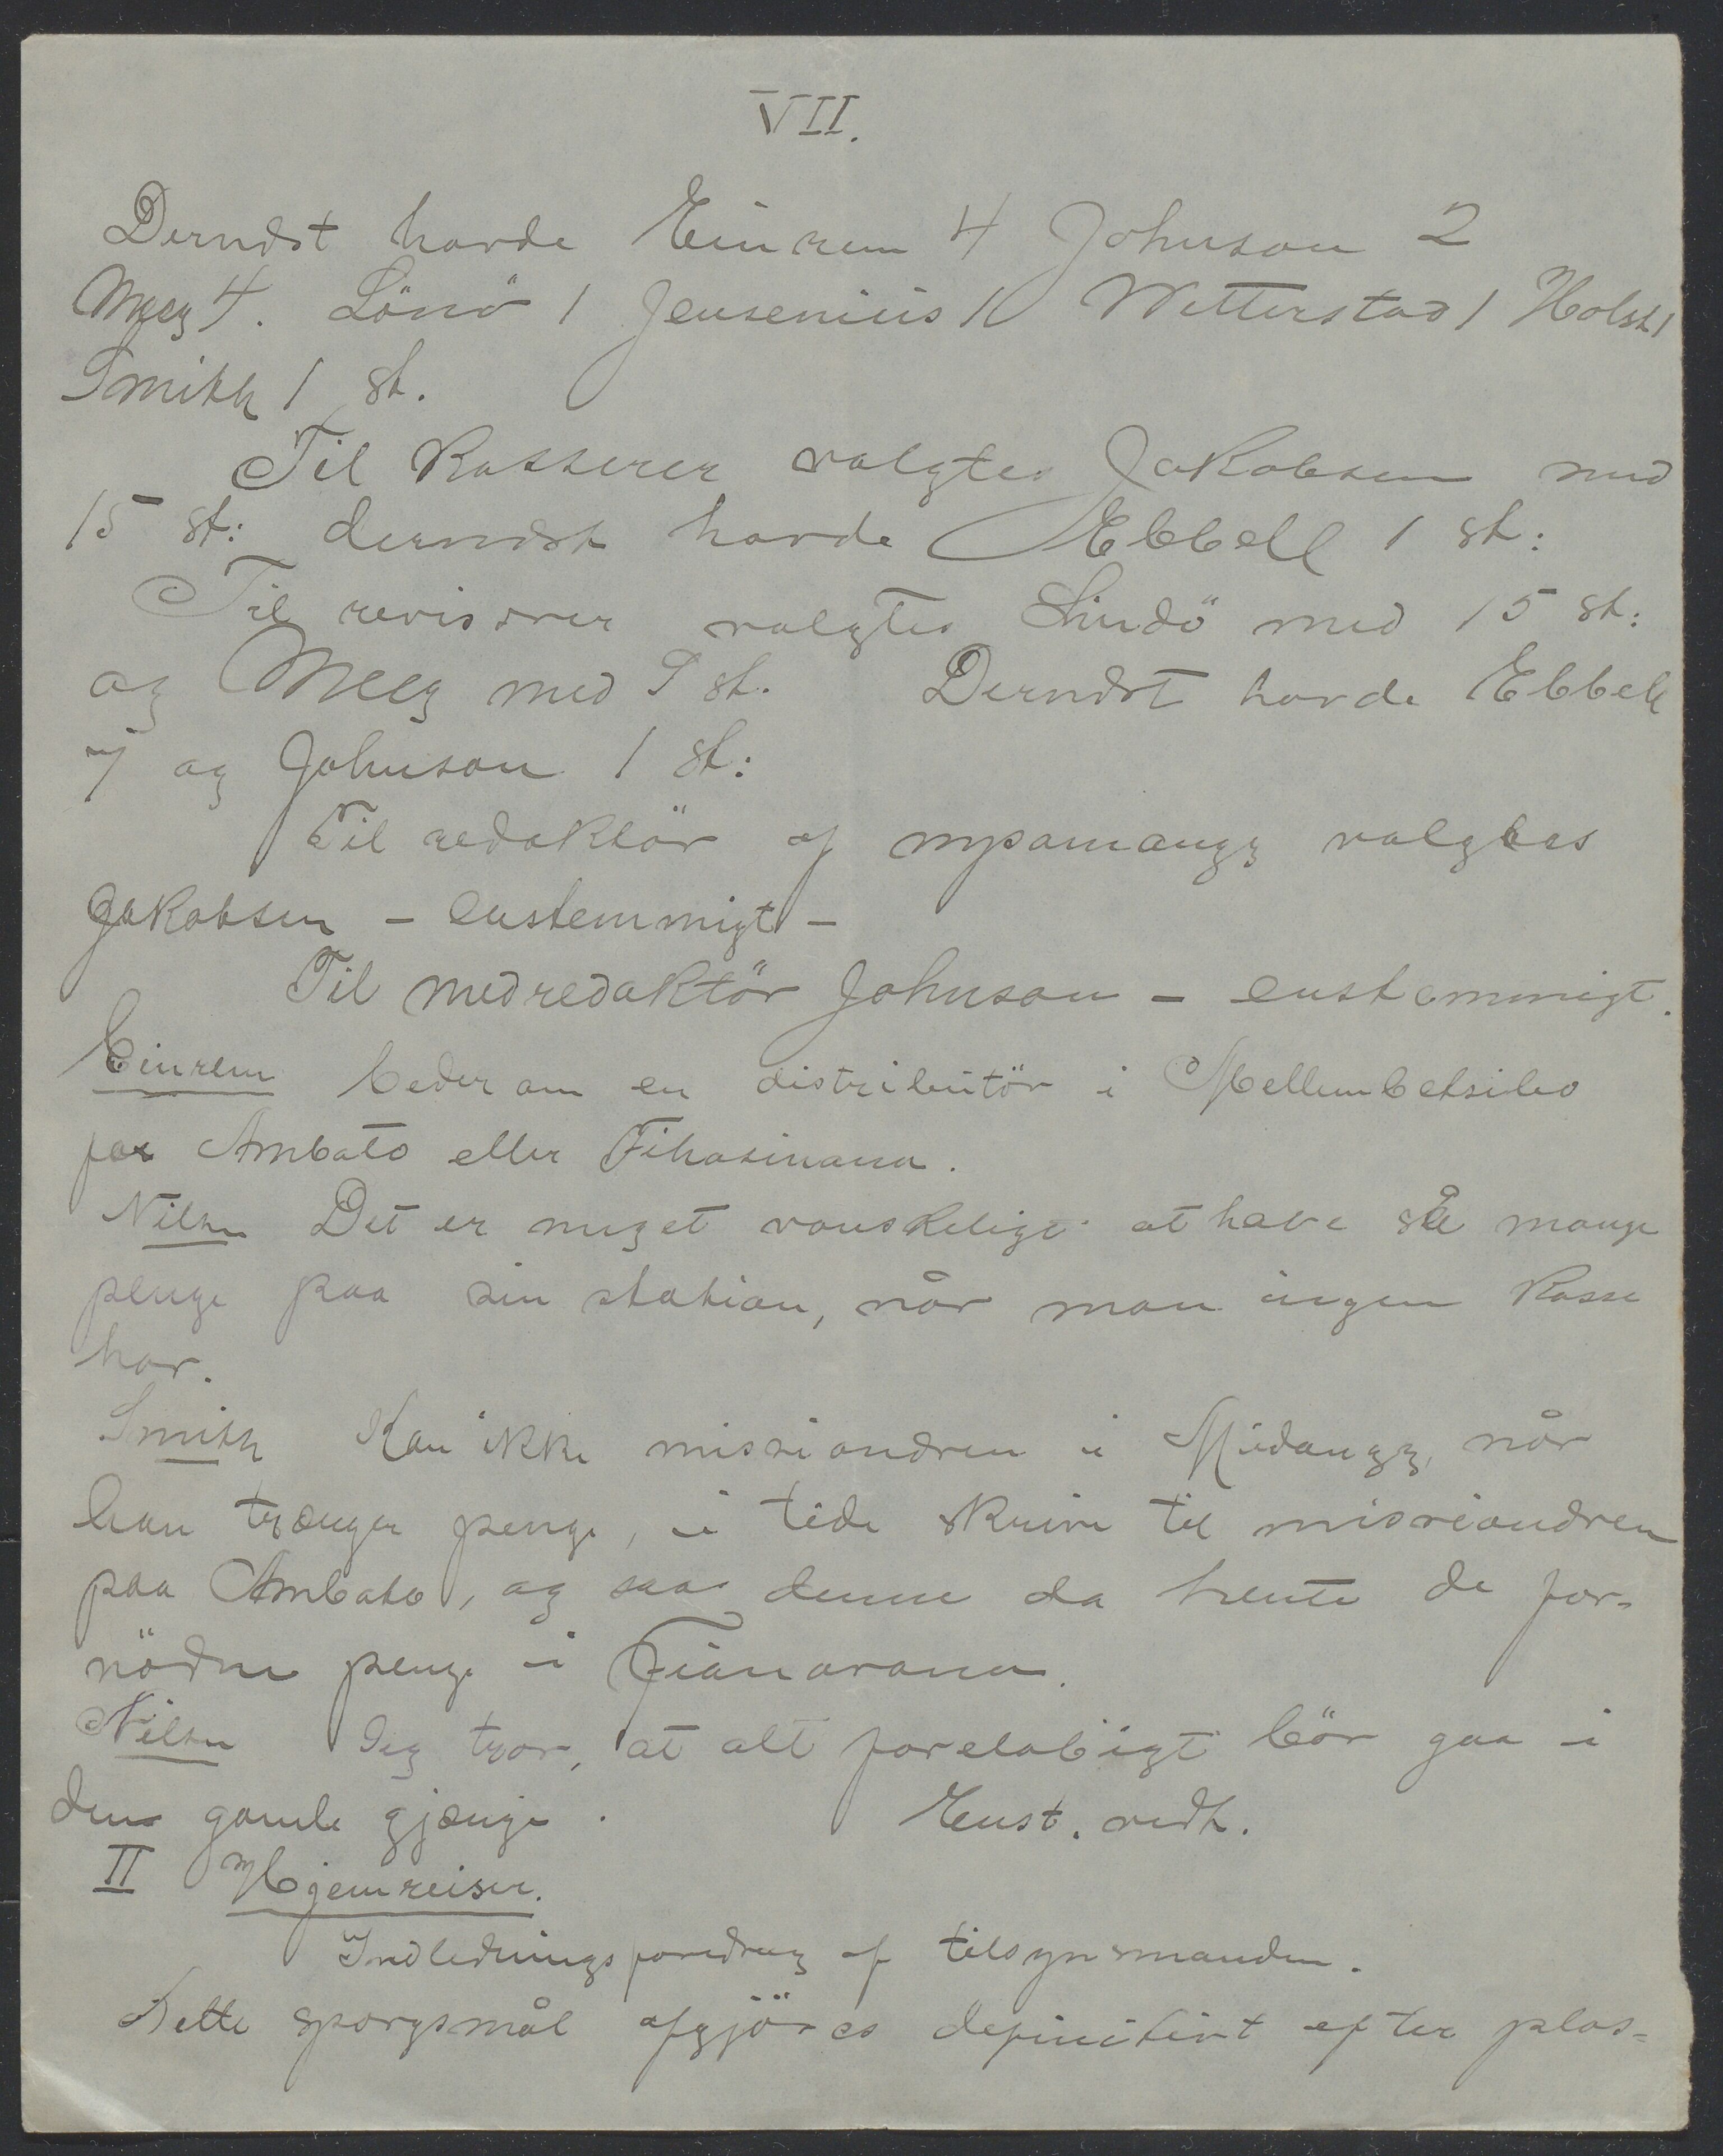 VII.
Dernæst havde Einrem 4 Johnson 2
Meeg 4. Lönö 1 Jensenius 1 Wetterstad 1 Holst 1
Smith 1 st.
Til kasserer valgtes Jakobsen med
15 st: dernæst havde Ebbell 1 st:
Til revisorer valgtes Lindö med 15 st:
og Meeg med 9 st. Dernæst havde Ebbell
7 og Johnson 1 st:
Til redaktör af mpamangy valgtes
Jakobsen – enstemmigt –
Til medredaktör Johnson – enstemmigt.
Einrem beder om en distributör i Mellembetsileo
for Ambato eller Fihasinana.
Nilsen Det er meget vanskeligt at have så mange
penge paa sin station, når man ingen kasse
har.
Smith Kan ikke missionæren i Midangy, når
han trænger penge, i tide skrive til missionæren
paa Ambato, og saa denne da hente de for-
nödne penge i Fianarana.
Nilsen Jeg tror, at alt forelöbigt bör gaa i
den gamle gjænge. Enst. vedt.
II Hjemreiser.
Indledningsforedrag af tilsynsmanden.
Dette spørgsmål afgjöres definitivt efter plas-